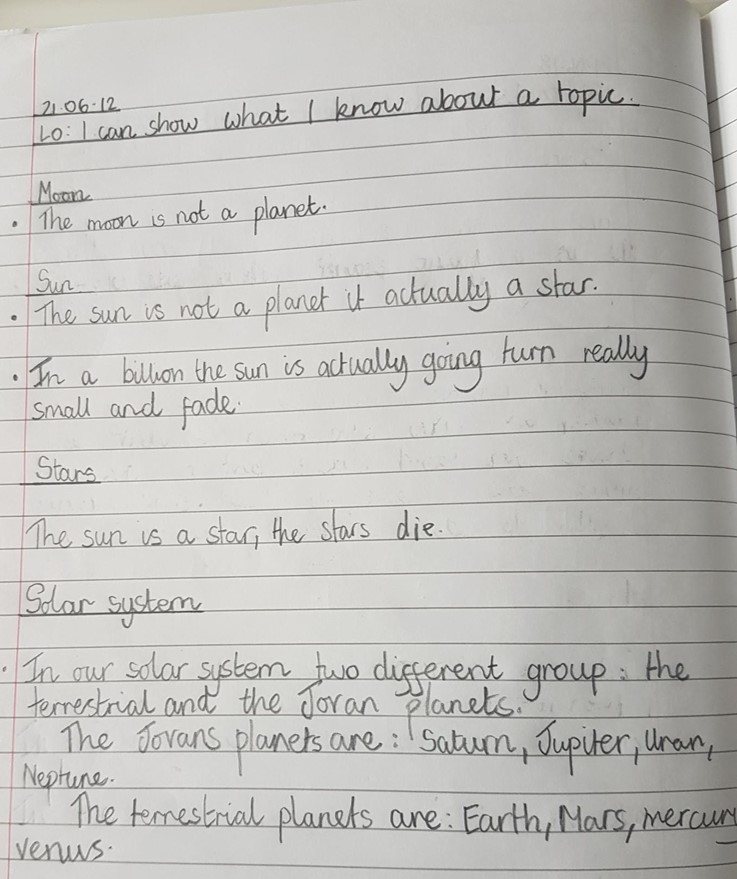 21.06.12
LO: I can show what I know about a topic.
Moon
• The moon is not a planet.
Sun
• The sun is not a planet it actually a star.
• In a billion the sun is actually going turn really
small and fade.
Stars
The sun is a star, the stars die.
Solar system
• In our solar system two different group: the
terrestrial and the Jovan planets.
The Jovans planets are: Saturn, Jupiter, Uran,
Neptune.
The terrestrial planets are: Earth, Mars, mercury
venus.